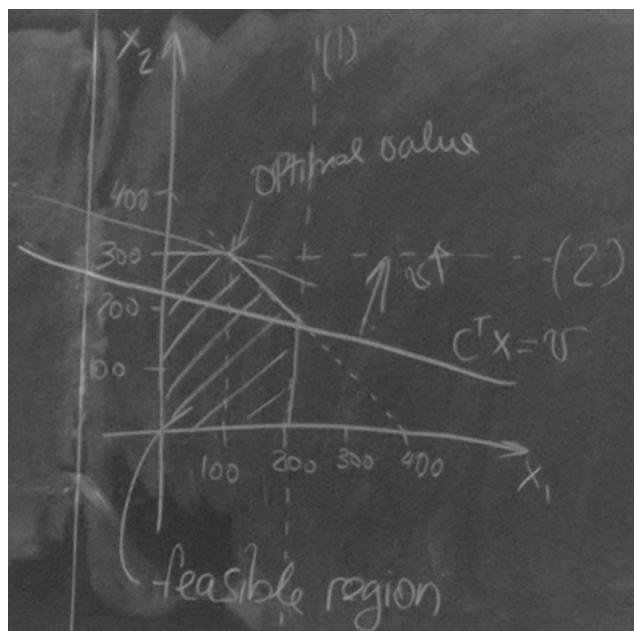 x₂
(1)
optimal value
400
300
(2)
v↑
200
Cᵀx=v
100
100 200 300 400
x₁
feasible region